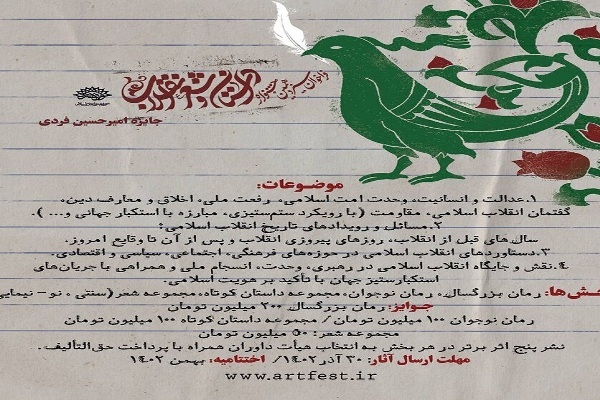 داستان و شعر انقلاب
جایزه امیرحسین فردی
موضــوعات:
۱.عدالت و انسانیت، وحدت امت اسلامی، رفعت ملی، اخلاق و معارف دین،
گفتمان انقلاب اسلامی، مقاومت (با رویکرد ستم‌ستیزی، مبارزه با استکبار جهانی و... ).
۲.مسائل و رویدادهای تاریخ انقلاب اسلامی؛
سال‌های قبل از انقلاب، روزهای پیروزی انقلاب و پس از آن تا وقایع امروز.
۳.دستاوردهای انقلاب اسلامی در حوزه‌های فرهنگی، اجتماعی، سیاسی و اقتصادی.
۴.نقش و جایگاه انقلاب اسلامی در رهبری، وحدت، انسجام ملی و همراهی با جریان‌های
استکبارستیز جهان با تأکید بر هویت اسلامی.
خش‌ها: رمان بزرگسال، رمان نوجوان، مجموعه داستان کوتاه، مجموعه شعر (سنتی ، نو - نیمایی
جوایز: رمان بزرگسال ۲۰۰ میلیون تومان
رمان نوجوان ۱۰۰ میلیون تومان/ مجموعه داستان کوتاه ۱۰۰ میلیون تومان
مجموعه شعر: ۵۰ میلیون تومان
نشر پنج اثر برتر در هر بخش به انتخاب هیأت داوران همراه با پرداخت حق‌التألیف.
مهلت ارسال آثار: ۳۰ آذر ۱۴۰۲/ اختتامیه: بهمن ۱۴۰۲
www.artfest.ir